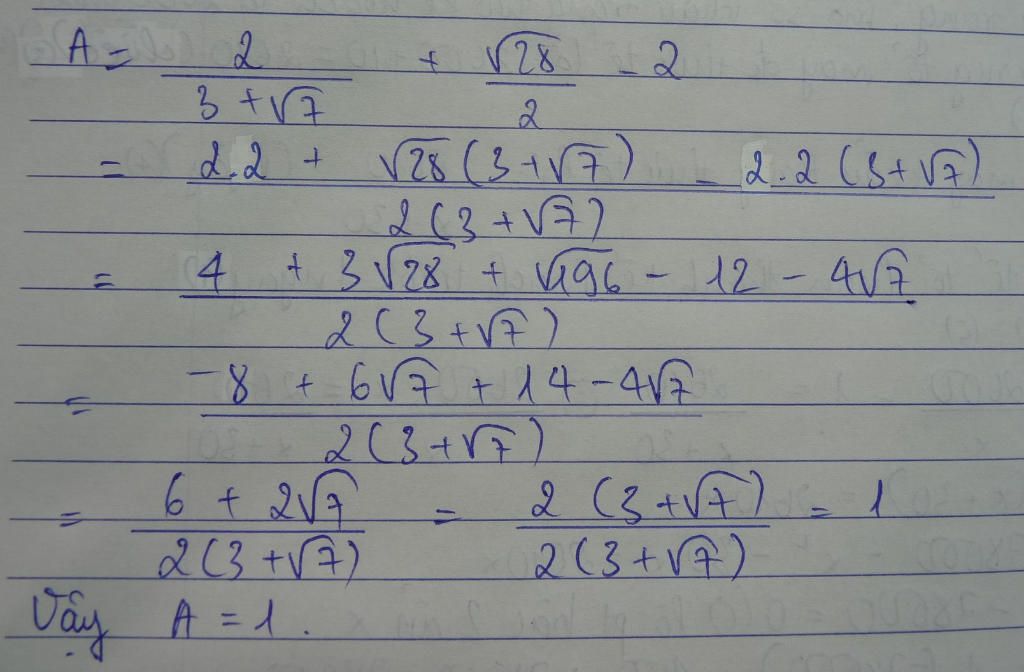 A = 2/(3 + √7) + √28/2 - 2
= (2.2 + √28(3 + √7) - 2.2(3 + √7))/(2(3 + √7))
= (4 + 3√28 + √196 - 12 - 4√7)/(2(3 + √7))
= (-8 + 6√7 + 14 - 4√7)/(2(3 + √7))
= (6 + 2√7)/(2(3 + √7)) = (2(3 + √7))/(2(3 + √7)) = 1
Vậy A = 1.